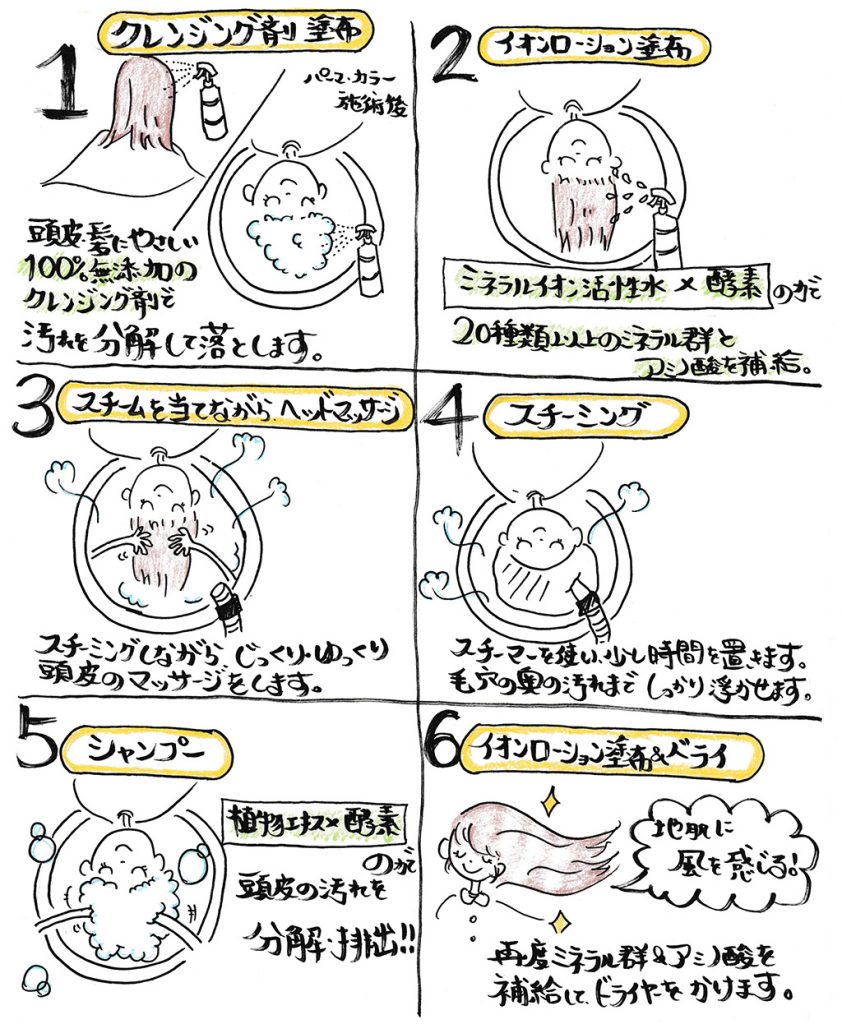 1 クレンジング剤 塗布
パーマ・カラー
施術後
頭皮・髪にやさしい
100%無添加の
クレンジング剤で
汚れを分解して落とします。
2 イオンローション塗布
ミネラルイオン活性水 × 酵素 の力で
20種類以上のミネラル群と
アミノ酸を補給。
3 スチームを当てながら ヘッドマッサージ
スチーミングしながら じっくり・ゆっくり
頭皮のマッサージをします。
4 スチーミング
スチーマーを使い、少し時間を置きます。
毛穴の奥の汚れまで しっかり浮かせます。
5 シャンプー
植物エキス×酵素
の力で
頭皮の汚れを
分解・排出!!
6 イオンローション塗布&ドライ
地肌に
風を感じる!
再度ミネラル群&アミノ酸を
補給して、ドライヤーをかけます。